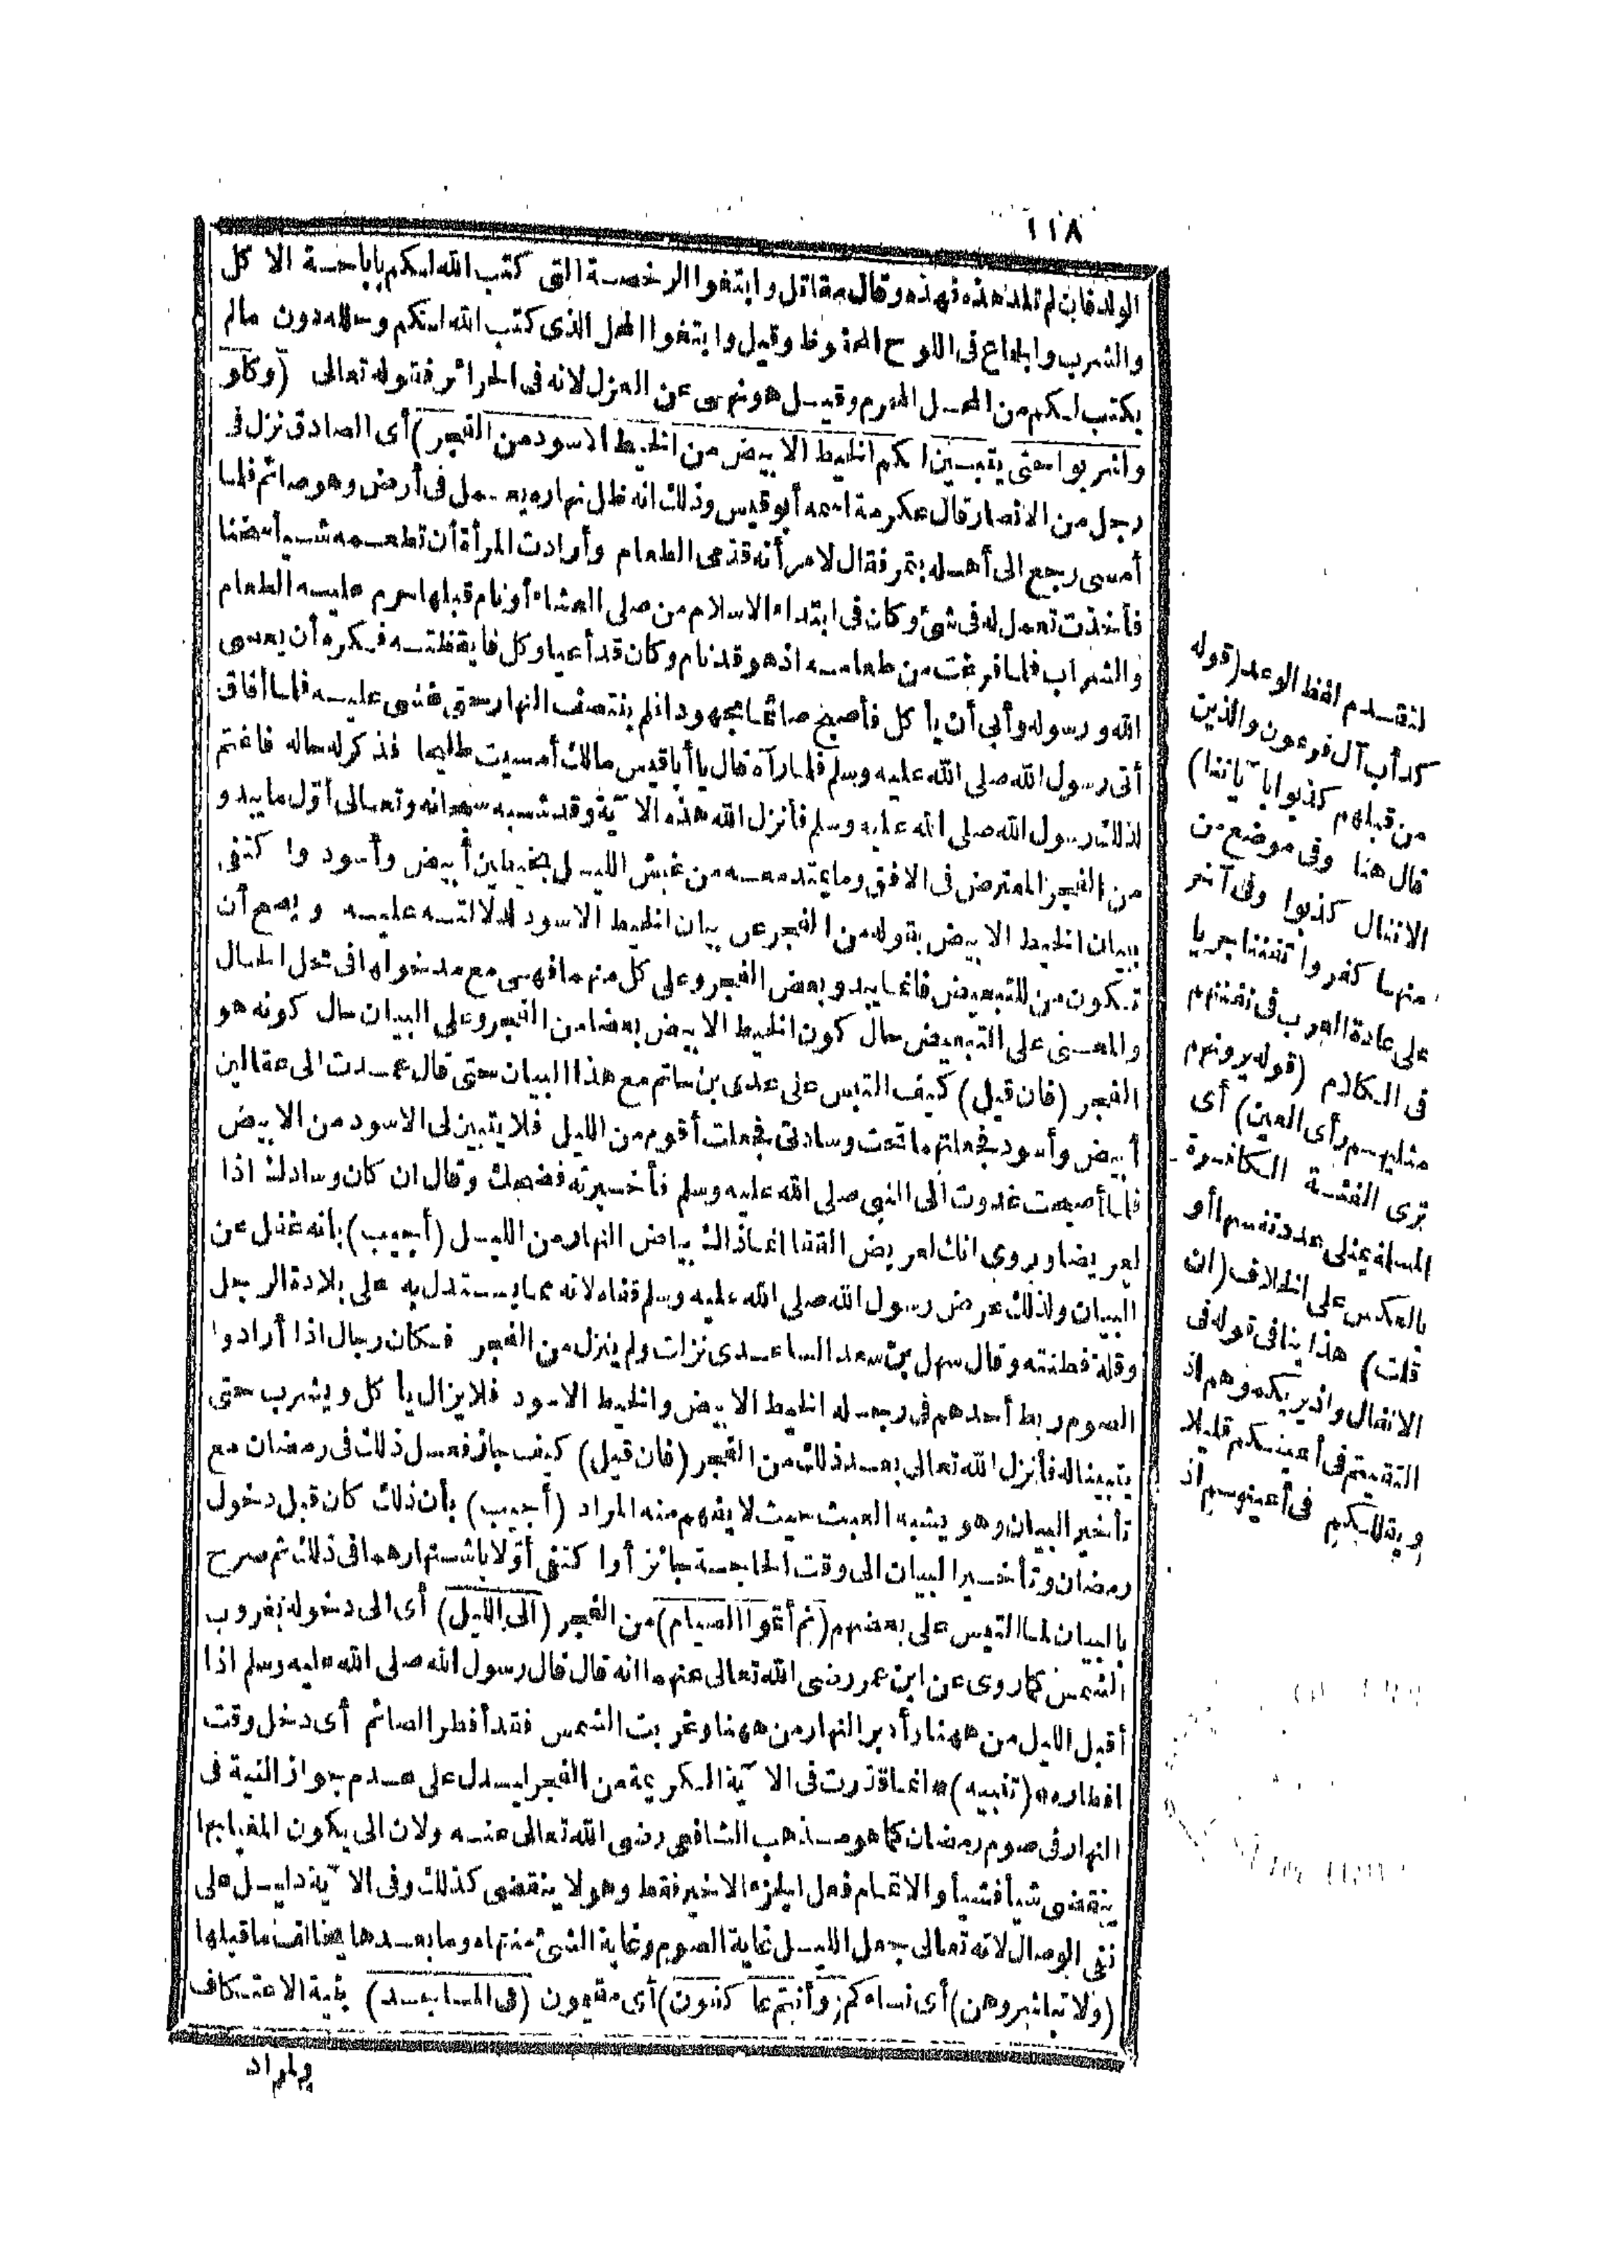 ١١٨
الولد فان لم تلد هذه فهذه وقال مقاتل وابتغوا الرخصة التى كتب الله لكم باباحة الاكل
والشرب والجماع فى اللوح المحفوظ وقيل وابتغوا المحل الذى كتب الله لكم وحلله دون مالم
يكتب لكم من المحل المحرم وقيل هو نهى عن العزل لانه فى الحرائر فقوله تعالى (وكلوا
واشربوا حتى يتبين لكم الخيط الابيض من الخيط الاسود من الفجر) أى الصادق نزل فى
رجل من الانصار قال عكرمة اسمه أبو قيس وذلك انه ظل نهاره يعمل فى أرض وهو صائم فلما
أمسى رجع الى أهله بتمر فقال لامرأته قدمى الطعام وأرادت المرأة أن تطعمه شيأ سخنا
فأخذت تعمل له فى شئ وكان فى ابتداء الاسلام من صلى العشاء أو نام قبلها حرم عليه الطعام
والشراب فلما فرغت من طعامه اذ هو قد نام وكان قد أعيا وكل فايقظته فكره أن يعصى
الله ورسوله وأبى أن يأكل فأصبح صائما مجهودا فلم ينتصف النهار حتى غشى عليه فلما أفاق
أتى رسول الله صلى الله عليه وسلم فلما رآه قال يا أبا قيس مالك أمسيت طليحا فذكر له حاله فاغتم
لذلك رسول الله صلى الله عليه وسلم فأنزل الله هذه الآية وقد شبه سبحانه وتعالى أوّل ما يبدو
من الفجر المعترض فى الافق وما يمتد معه من غبش الليل بخيطين أبيض وأسود واكتفى
ببيان الخيط الابيض بقوله من الفجر عن بيان الخيط الاسود لدلالته عليه ويصح أن
تكون من للتبعيض فانما يبدو بعض الفجر وعلى كل منهما فهى مع مدخولها فى محل الحال
والمعنى على التبعيض حال كون الخيط الابيض بعضا من الفجر وعلى البيان حال كونه هو
الفجر (فان قيل) كيف التبس على عدى بن حاتم مع هذا البيان حتى قال عمدت الى عقالين
أبيض وأسود فجعلتهما تحت وسادتى فجعلت أقوم من الليل فلا يتبين لى الاسود من الابيض
فلما أصبحت غدوت الى النبى صلى الله عليه وسلم فأخبرته فضحك وقال ان كان وسادك اذا
لعريضا وروى انك لعريض القفا انما ذاك بياض النهار من الليل (أجيب) بانه غفل عن
البيان ولذلك عرض رسول الله صلى الله عليه وسلم قفاه لانه مما يستدل به على بلادة الرجل
وقلة فطنته وقال سهل بن سعد الساعدى نزلت ولم ينزل من الفجر فكان رجال اذا أرادوا
الصوم ربط أحدهم فى رجله الخيط الابيض والخيط الاسود فلا يزال يأكل ويشرب حتى
يتبينا له فأنزل الله تعالى بعد ذلك من الفجر (فان قيل) كيف جاز فعل ذلك فى رمضان مع
تأخير البيان وهو يشبه العبث حيث لا يفهم منه المراد (أجيب) بأن ذلك كان قبل دخول
رمضان وتأخير البيان الى وقت الحاجة جائز أو اكتفى أوّلا باشتهارهما فى ذلك ثم صرح
بالبيان لما التبس على بعضهم (ثم أتموا الصيام) من الفجر (الى الليل) أى الى دخوله بغروب
الشمس كما روى عن ابن عمر رضى الله تعالى عنهما انه قال قال رسول الله صلى الله عليه وسلم اذا
أقبل الليل من ههنا وأدبر النهار من ههنا وغربت الشمس فقد أفطر الصائم أى دخل وقت
افطاره * (تنبيه) * انما قدرت فى الآية الكريمة من الفجر ليدل على عدم جواز النية فى
النهار فى صوم رمضان كما هو مذهب الشافعى رضى الله تعالى عنه ولان الى يكون المغيابها
ينقضى شيأ فشيأ والاتمام فعل الجزء الاخير فقط وهو لا ينقضى كذلك وفى الآية دليل على
نفى الوصال لانه تعالى جعل الليل غاية الصوم وغاية الشئ منتهاه وما بعدها يخالف ما قبلها
(ولا تباشروهن) أى نساءكم (وأنتم عاكفون) أى مقيمون (فى المساجد) بنية الاعتكاف
والمراد
لتقدم لفظ الوعد (قوله
كدأب آل فرعون والذين
من قبلهم كذبوا بآياتنا)
قال هنا وفى موضع من
الانفال كذبوا وفى آخر
منهما كفروا تفننا جريا
على عادة العرب فى تفننهم
فى الكلام (قوله يرونهم
مثليهم رأى العين) أى
ترى الفئة الكافرة
المسلمة مثلى عدد نفسها أو
بالعكس على الخلاف (ان
قلت) هذا ينافى قوله فى
الانفال واذ يريكموهم اذ
التقيتم فى أعينكم قليلا
ويقللكم فى أعينهم اذ